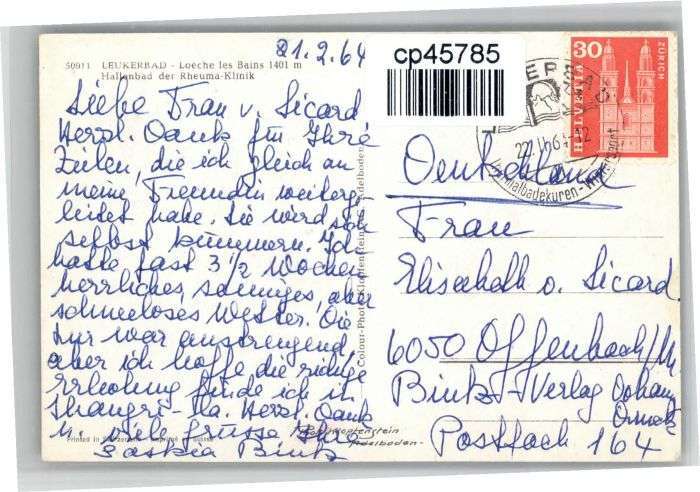 21.2.64
cp45785
50911 LEUKERBAD - Loèche les Bains 1401 m
Hallenbad der Rheuma-Klinik
Liebe Frau v. Sicard
Herzl. Dank für Ihre
Zeilen, die ich gleich an
meine Freundin weiterge-
leitet habe. Sie werd sich
selbst kümmern. Ich
hatte fast 3 1/2 Wochen
herrliches, sonniges, aber
schneeloses Wetter. Die
Kur war anstrengend
aber ich hoffe die richtige
Erholung finde ich in
Shangri-la. Herzl. Dank
u. viele Grüsse Ihre
Saskia Bink
Printed in
Colour-Photo Klopfenstein Adelboden
Klopfenstein
Adelboden
30
HELVETIA
ZÜRICH
Deutschland
Frau
Elisabeth v. Sicard
6050 Offenbach/M
Verlag Johann
Postfach 164